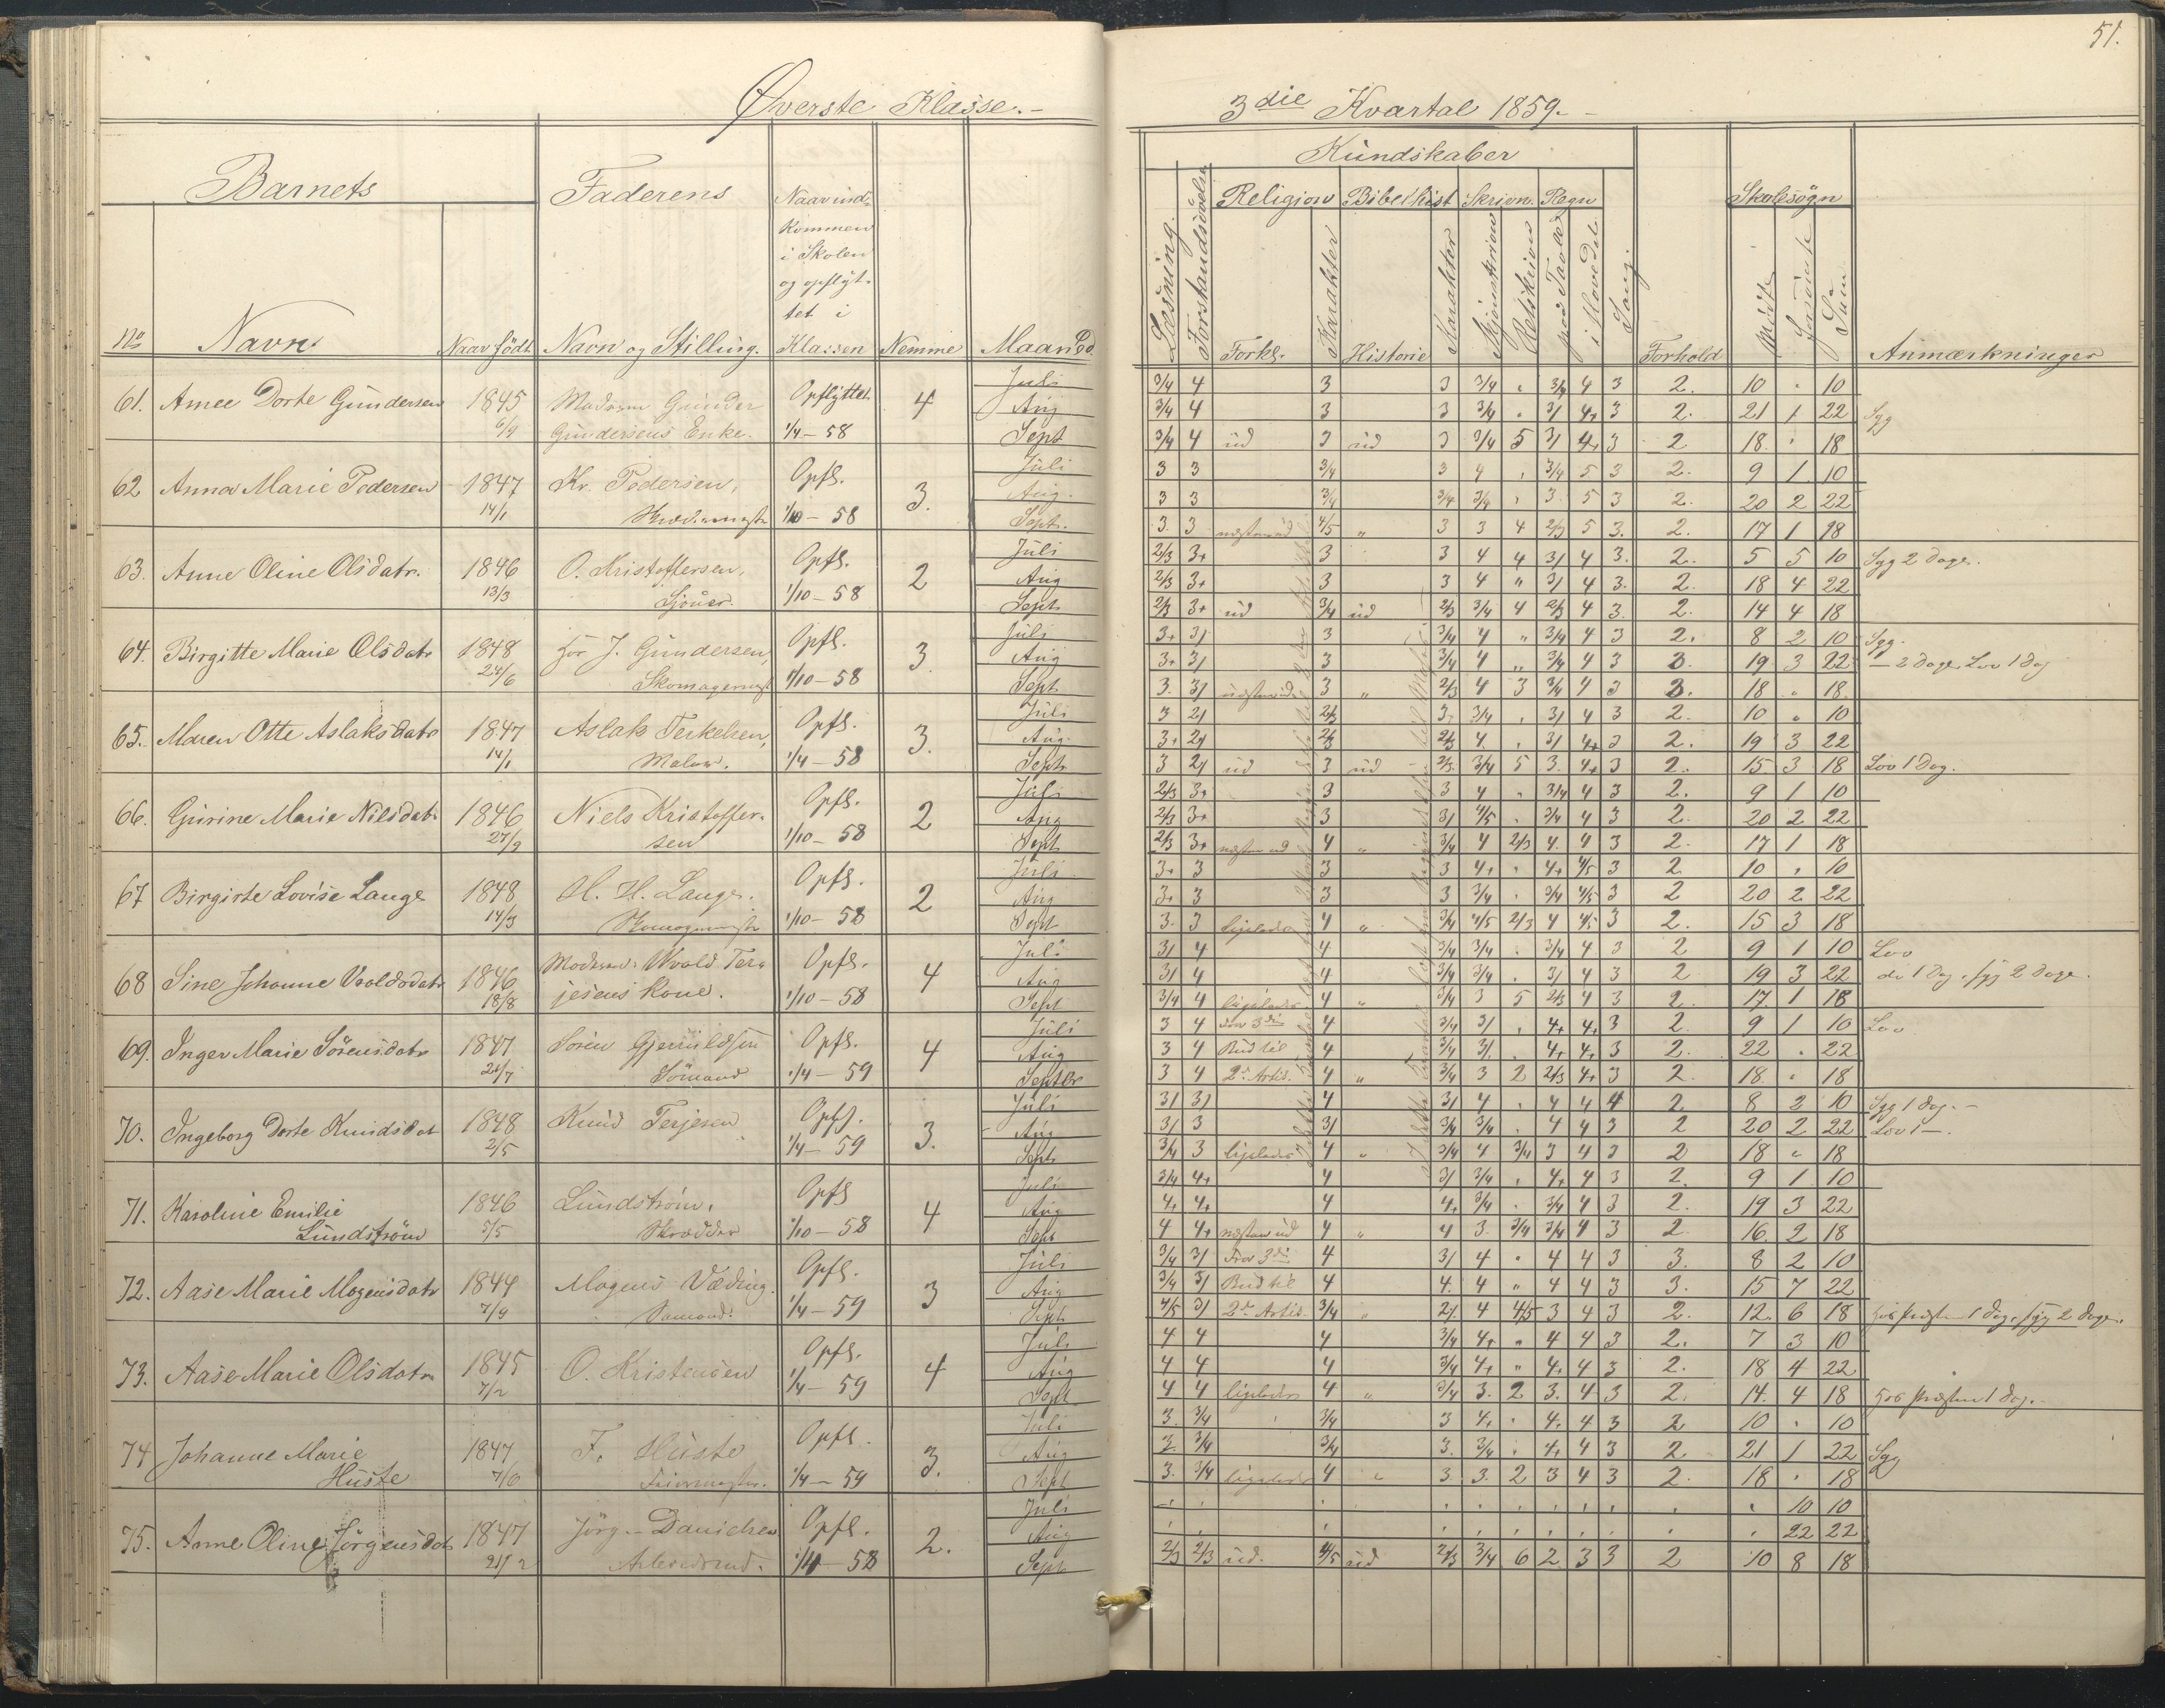 51.
Øverste Klasse.-
3die Kvartal 1859.-
Barnets
Faderens
Naar ind-
kommen
i Skolen
og opflyt-
tet i
Klassen
No Navn Naar født Navn og Stilling. Nemme Maaned
Kundskaber
Religion Bibelhist Skrivn. Regn
Skolesøgn
Læsning. Forstandsøvelse Forkl. Karakter Historie Karakter Skjønskrivn Retskrivn paa Tavle i Hovedet Sang. Forhold Mødt Forsømt Sum Anmærkninger
61. Anee Dorte Gundersen 1845 Gunder Opflyttet 4 Juli
6/9 Gundersens Enke. 1/4-58 Aug
Sept
3/4 4 3 3 3/4 3/4 4 3 2. 10 " 10
3/4 4 3 3 3/4 " 3/ 4+ 3 2. 21 1 22 Syg
3/4 4 ud 3 ud 3 3/4 5 3/ 4+ 3 2 18. " 18
62 Anna Marie Pedersen 1847 Kr. Pedersen, Opfl. 3. Juli
14/1 1/10-58 Aug.
Sept.
3 3 3/4 3 4 " 3/4 5 3 2. 9 1 10
3 3 3/4 3/4 3/4 " 3. 5 3 2. 20 2 22
3. 3 næsten ud 4/5 " 3 3 4 2/3 5 3. 2. 17 1 18
63. Anne Oline Olsdatr. 1846 O. Kristoffersen, Opfl. 2 Juli
13/3 1/10-58 Aug
Sept
2/3 3+ 3 3 4 4 3/ 4 3. 2. 5 5 10 Syg 2 Dage.
2/3 3+ 3 3 4 " 3/ 4 3. 2. 18 4 22
2/3 3+ ud 3/4 ud 2/3 3/4 4 2/3 4 3. 2. 14 4 18
64. Birgitte Marie Olsdatr 1848 for J. Gundersen, Opfl. 3. Juli
24/6 Skomagermest 1/10-58 Aug
Sept
3+ 3/ 3 3/4 4 " 3/4 4 3 2. 8 2 10 Syg.
3+ 3/ 3 3/4 4 " 3/4 4 3 3. 19 3 22 - 2 Dage. Lov 1 Dag
3. 3/ næsten ud 3 " 2/3 4 3 3/4 4 3 3. 18 " 18.
65. Maren Otte Aslaksdatr 1847 Aslak Terkelsen, Opfl. 3. Juli
14/1 Maler. 1/4-58 Aug.
Sept
3 2/ 2/3 3. 3/4 " 3/ 4 3 2. 10 " 10
3+ 2/ 2/3 2/3 4. " 3/ 4+ 3 2. 19 3 22
3 2/ ud 3 ud 2/3 3/4 5 3. 4+ 3 2. 15 3 18 Lov 1 Dag.
66. Gurine Marie Nilsdatr 1846 Niels Kristoffer- Opfl. 2 Juli
27/9 sen 1/10-58 Aug
Sept
2/3 3+ 3 3 4 " 3/4 4 3 2. 9 1 10
2/3 3+ 3 3/ 4/5 " 3/4 4 3 2. 20 2 22
2/3 3+ næsten ud 4 " 3/4 4 2/3 4. 4 3 2. 17 1 18
67 Birgitte Lovise Lange 1848 H. H. Lange. Opfl. 2 Juli
14/3 1/10-58 Aug
Sept
3+ 3 3 3 4+ " 4+ 4/5 3 2 10 " 10
3+ 3 3 3 3/4 " 3/4 4/5 3 2 20 2 22
3. 3 ligeledes 4 " 3/4 4/5 2/3 4 4/5 3 2. 15 3 18
68 Sine Johanne 1846 Opfl. 4 Juli
18/8 jesens Kone. 1/10-58 Aug
Sept
3/ 4 4 3/4 3/4 " 3/4 4 3 2 9 1 10 Lov
3/ 4 4 3/4 3/4 " 3/ 4 3 2 19 3 22 1 Dag, syg 2 Dage.
3/4 4 ligeledes 4 " 3/4 3 5 2/3 4 3 2. 17. 1 18
69. Inger Marie Sörensdatr 1847 Sören Gjeruldsen Opfl. 4 Juli
24/7 Sömand 1/4-59 Aug
Septbr
3 4 Fra 3die 4 3/4 3/ " 4+ 4+ 3 2. 9 1 10 Lov
3 4 Bud til 4 3/4 3/. " 4+ 4+ 3 2. 22 " 22
3 4 2. Artik. 4 " 3/4 3 2 2/3 4+ 3 2. 18. " 18
70. Ingeborg Dorte Knudsdat 1848 Knud Terjesen Opfl. 3. Juli
2/5 1/4-59 Aug
Sept
3/ 3/ 4 3/ 4 " 4 4 4 2 8 2 10 Syg 1 Dag. -
3/ 3 3/ 3/4 3/4 " 4 4 3 2 20 2 22 Lov 1 -.
3/4 3 ligeledes 4 " 3/4 4 3/4 3 4 3 2 18 " 18
71. Karoline Emilie 1846 Lundström, Opfl 4 Juli
Lundström 5/5 Skrædder 1/10-58 Aug
Sept
3/4 4+ 4 3/ 3/4 " 4+ 4 3 2. 9 1 10
4+ 4+ 4 4+ 3/4 " 3/4 4 3 2. 19 3 22
4 4+ næsten ud 4 " 4 3. 3/4 3/4 4 3 2 16. 2 18
72. Aase Marie Mogensdatr 1844 Mogens Væding. Opfl. 3 Juli
7/9 Sømand. 1/4-59 Aug
Sept
3/4 3/ Fra 3die 4 3/ 4 " 4 4 3 3. 8 2 10
3/4 3/ Bud til 4 4. 4 " 4 4 3 3. 15 7 22
4/5 3/ 2. Artik. 3/4 " 2/. 4 4/5 3 4 3 2. 12. 6 18 hos Præsten 1 Dag, syg 2 Dage.
73. Aase Marie Olsdatr. 1845 O. Kristensen Opfl. 4 Juli
7/2 1/4-59 Aug
Sept
4 4 4 3/4 4+ " 4 4 3 2. 7 3 10
4 4 4 3/4 4+ " 4+ 4 3 2. 18 4 22
4 4 ligeledes 4 " 3/4 3. 2 3. 4 3 2. 14. 4 18 hos Præsten 1 Dag.
74 Johanne Marie 1847 F. Huste Opfl. 3. Juli
Huste 7/6 1/4-59 Aug
Sept
3. 3/4 3/4 3 4+ " 4. 4 3 2 10 " 10
3. 3/4 3/4 3. 3/4 " 4+ 4 3 2 21 1 22 Syg
3. 3/4 ligeledes 4 " 3 3. 2 3 4 3 2. 18 " 18
75. Anne Oline Jörgensdatr 1847 Jörg. Danielsen Opfl. 2. Juli
21/12 1/4-58 Aug
Sept
10 10
22 22
2/3 2/3 ud. 4/5 ud 2/3 3/4 6 2 3 3 2 10 8 18